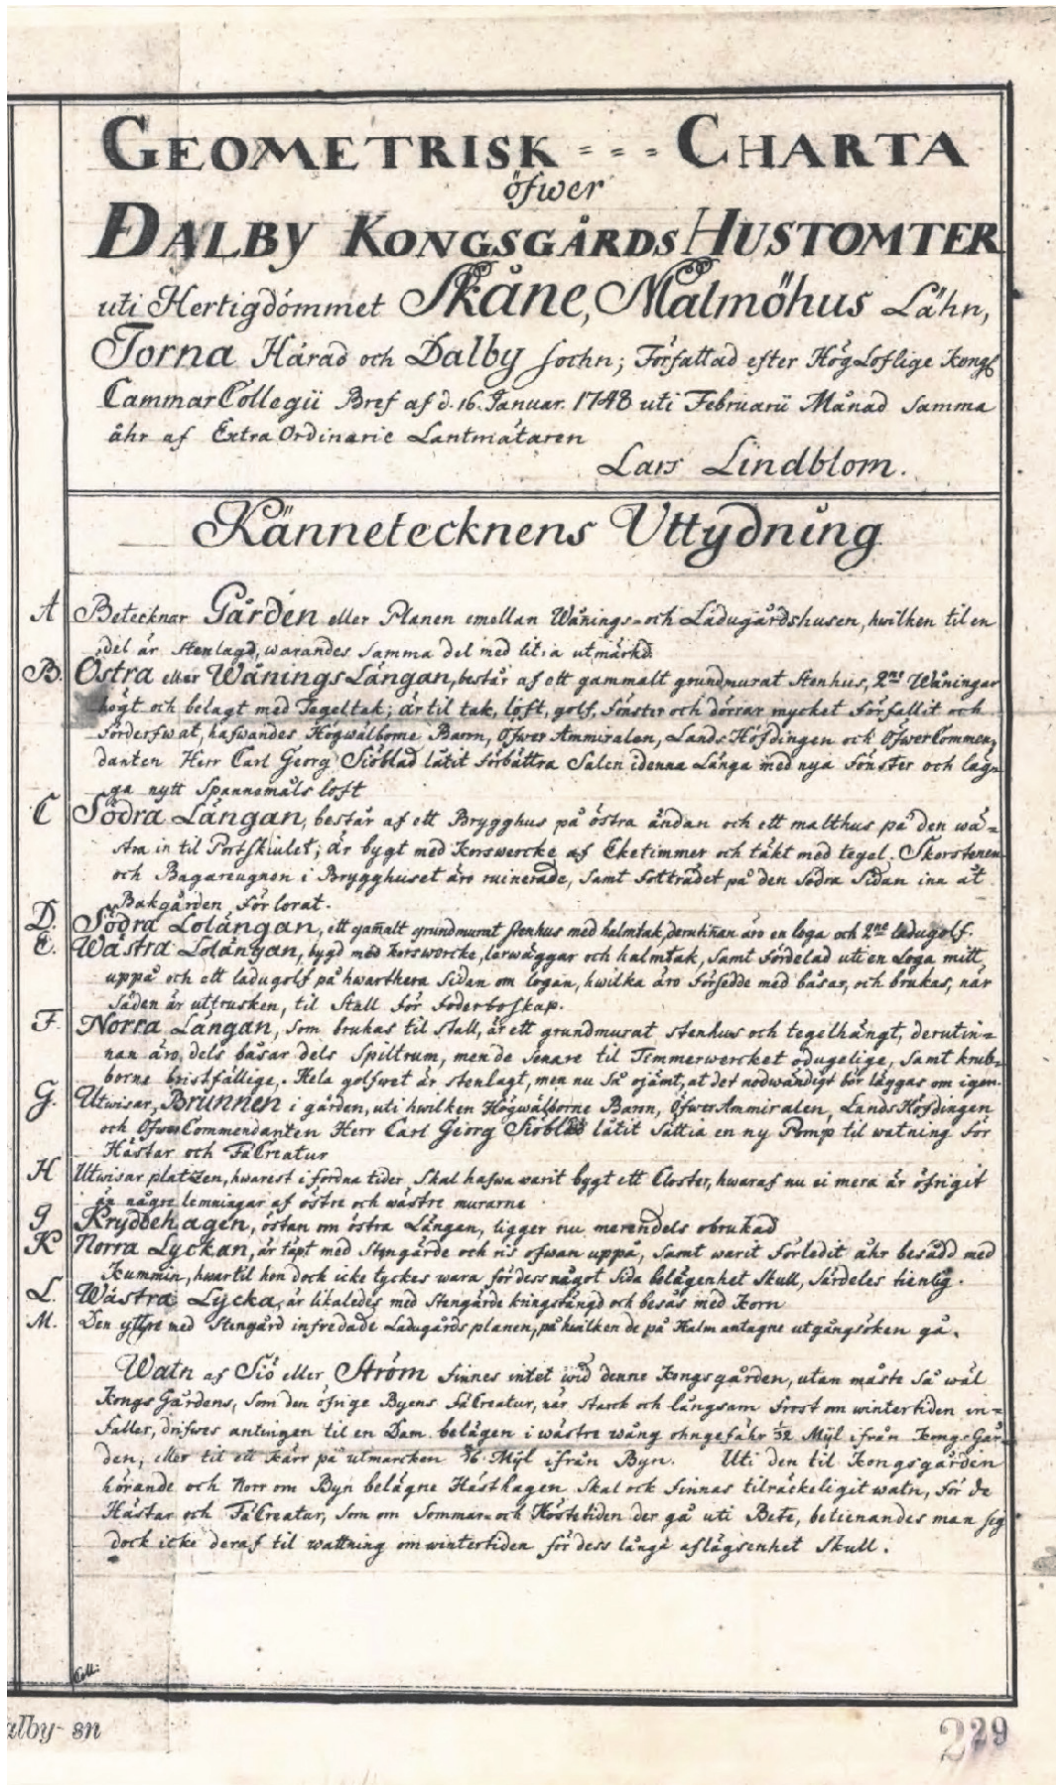 GEOMETRISK - - - CHARTA
öfwer
DALBY KONGSGÅRDS HUSTOMTER
uti Hertigdömmet Skåne, Malmöhus Lähn,
Torna Härad och Dalby sochn; Författad efter HögLoflige Kongs
CammarCollegii Bref af d. 16. Januar. 1748 uti Februarii Månad samma
åhr af Extra Ordinarie Lantmätaren
Lars Lindblom.
Kännetecknens Uttydning
A Betecknar Gården eller Planen emellan Wånings- och Ladugårdshusen, hwilken til en
del är stenlagd, warandes samma del med lit: a utmärkd.
B. Östra eller Wånings Längan, består af ett gammalt grundmurat stenhus, 2ne Wåningar
högt och belagt med Tegeltak; är til tak, loft, golf, fönster och dörrar mycket förfallit och
förderfwat, hafwandes Högwälborne Baron, Öfwer Ammiralen, Lands Höfdingen och ÖfwerCommen,
danten Herr Carl Georg Siöblad låtit förbättra Salen i denna Länga med nya fönster och läg,
ga nytt Spannemåls loft
C Södra Längan, består af ett Brygghus på östra ändan och ett malthus på den wä=
stra in til Portskiulet; är bygt med Korswercke af Eketimmer och täkt med tegel. Skorstenen
och Bagareugnen i Brygghuset äro ruinerade, samt fotträdet på den södra sidan inn åt
Bakgården förlorat.
D. Södra Lolängan, ett gamalt grundmurat stenhus med halmtak, derutinnan äro en loga och 2ne ladugolf.
E. Wästra Lolängan, bygd med korswercke, lerwäggar och halmtak, samt fördelad uti en Loga mitt
uppå och ett ladugolf på hwarthera sidan om logan, hwilka äro försedde med båsar, och brukas, när
säden är uttrusken, til Stall för foderboskap.
F. Norra Längan, som brukas til stall, är ett grundmurat stenhus och tegelhängt, derutin=
nan äro, dels båsar dels Spiltrum, men de senare til Timmerwercket odugelige, samt krub=
borne bristfällige. Hela golfwet är stenlagt, men nu så ojämt, at det nödwändigt bör läggas om igen.
G. Utwisar, Brunnen i gården, uti hwilken Högwälborne Baron, ÖfwerAmmiralen, LandsHöfdingen
och ÖfwerCommendanten Herr Carl Georg Siöblad låtit sättia en ny Pomp til watning för
Hästar och FäCreatur
H Utwisar platzen, hwarest i fordna tider skal hafwa warit bygt ett Closter, hwaraf nu ei mera är öfrigit
än några lemningar af östre och wästre murarne
J Kryddehagen, östan om östra Längan, ligger nu merendels obrukad
K Norra Lyckan, är täpt med Stengärde och ris ofwan uppå, samt warit förledit åhr besådd med
Kummin, hwartil hon dock icke tyckes wara för dess något sida belägenhet skull, särdeles tienlig.
L. Wästra Lycka, är likaledes med Stengärde kringstängd och besås med Korn
M. Den yttre med Stengärd infredade Ladugårds planen, på hwilken de på Halm antagne utgångsöken gå.
Watn af Siö eller Ström finnes intet wid denne Kongsgården, utan måste så wäl
Kongs Gårdens, som den öfrige Byens FäCreatur, när starck och långsam frost om wintertiden in=
faller, drifwes antingen til en Dam belägen i wästre wång ohngefähr 1/32 Mijl ifrån Kongs Går
den, eller til ett Kärr på utmarcken 1/16 Mijl ifrån Byn. Uti den til Kongsgården
hörande och Norr om Byn belägne Hästhagen skal ock finnas tilräckeligit watn, för de
Hästar och FäCreatur, som om Sommar- och Höstetiden der gå uti Bete, betienandes man sig
dock icke deraf til wattning om wintertiden för dess långa aflägsenhet skull.
Coll:
alby sn
229